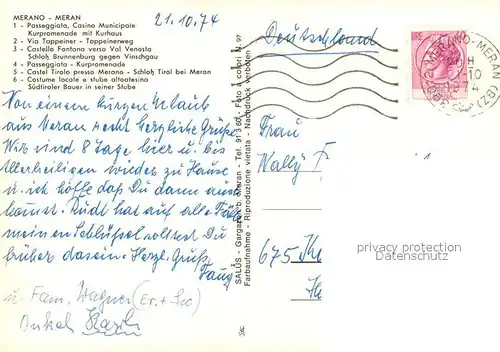 MERANO - MERAN
1 - Passeggiata, Casino Municipale
Kurpromenade mit Kurhaus
2 - Via Tappeiner - Tappeinerweg
3 - Castello Fontana verso Val Venosta
Schloß Brunnenburg gegen Vinschgau
4 - Passeggiata - Kurpromenade
5 - Castel Tirolo presso Merano - Schloß Tirol bei Meran
6 - Costume locale e stube altoatesina
Südtiroler Bauer in seiner Stube
21.10.74
Von einem kurzen Urlaub
aus Meran sendet herzliche Grüße
Wir sind 8 Tage hier u. bis
Allerheiligen wieder zu Hause
u. ich hoffe daß Du dann auch
kommst. Rudi hat auf alle Fälle
meinen Schlüssel solltest Du
früher da sein. Herzl. Grüße
u. Fam. Wagner
Onkel Karl
SALUS - Gargazon b. Meran - Tel. 91 3 60 - Foto a colori N. 97
Farbaufnahme - Riproduzione vietata - Nachdruck verboten
Deutschland
MERANO - MERAN
(BZ)
Frau
Wally F
675 K
privacy protection
Datenschutz